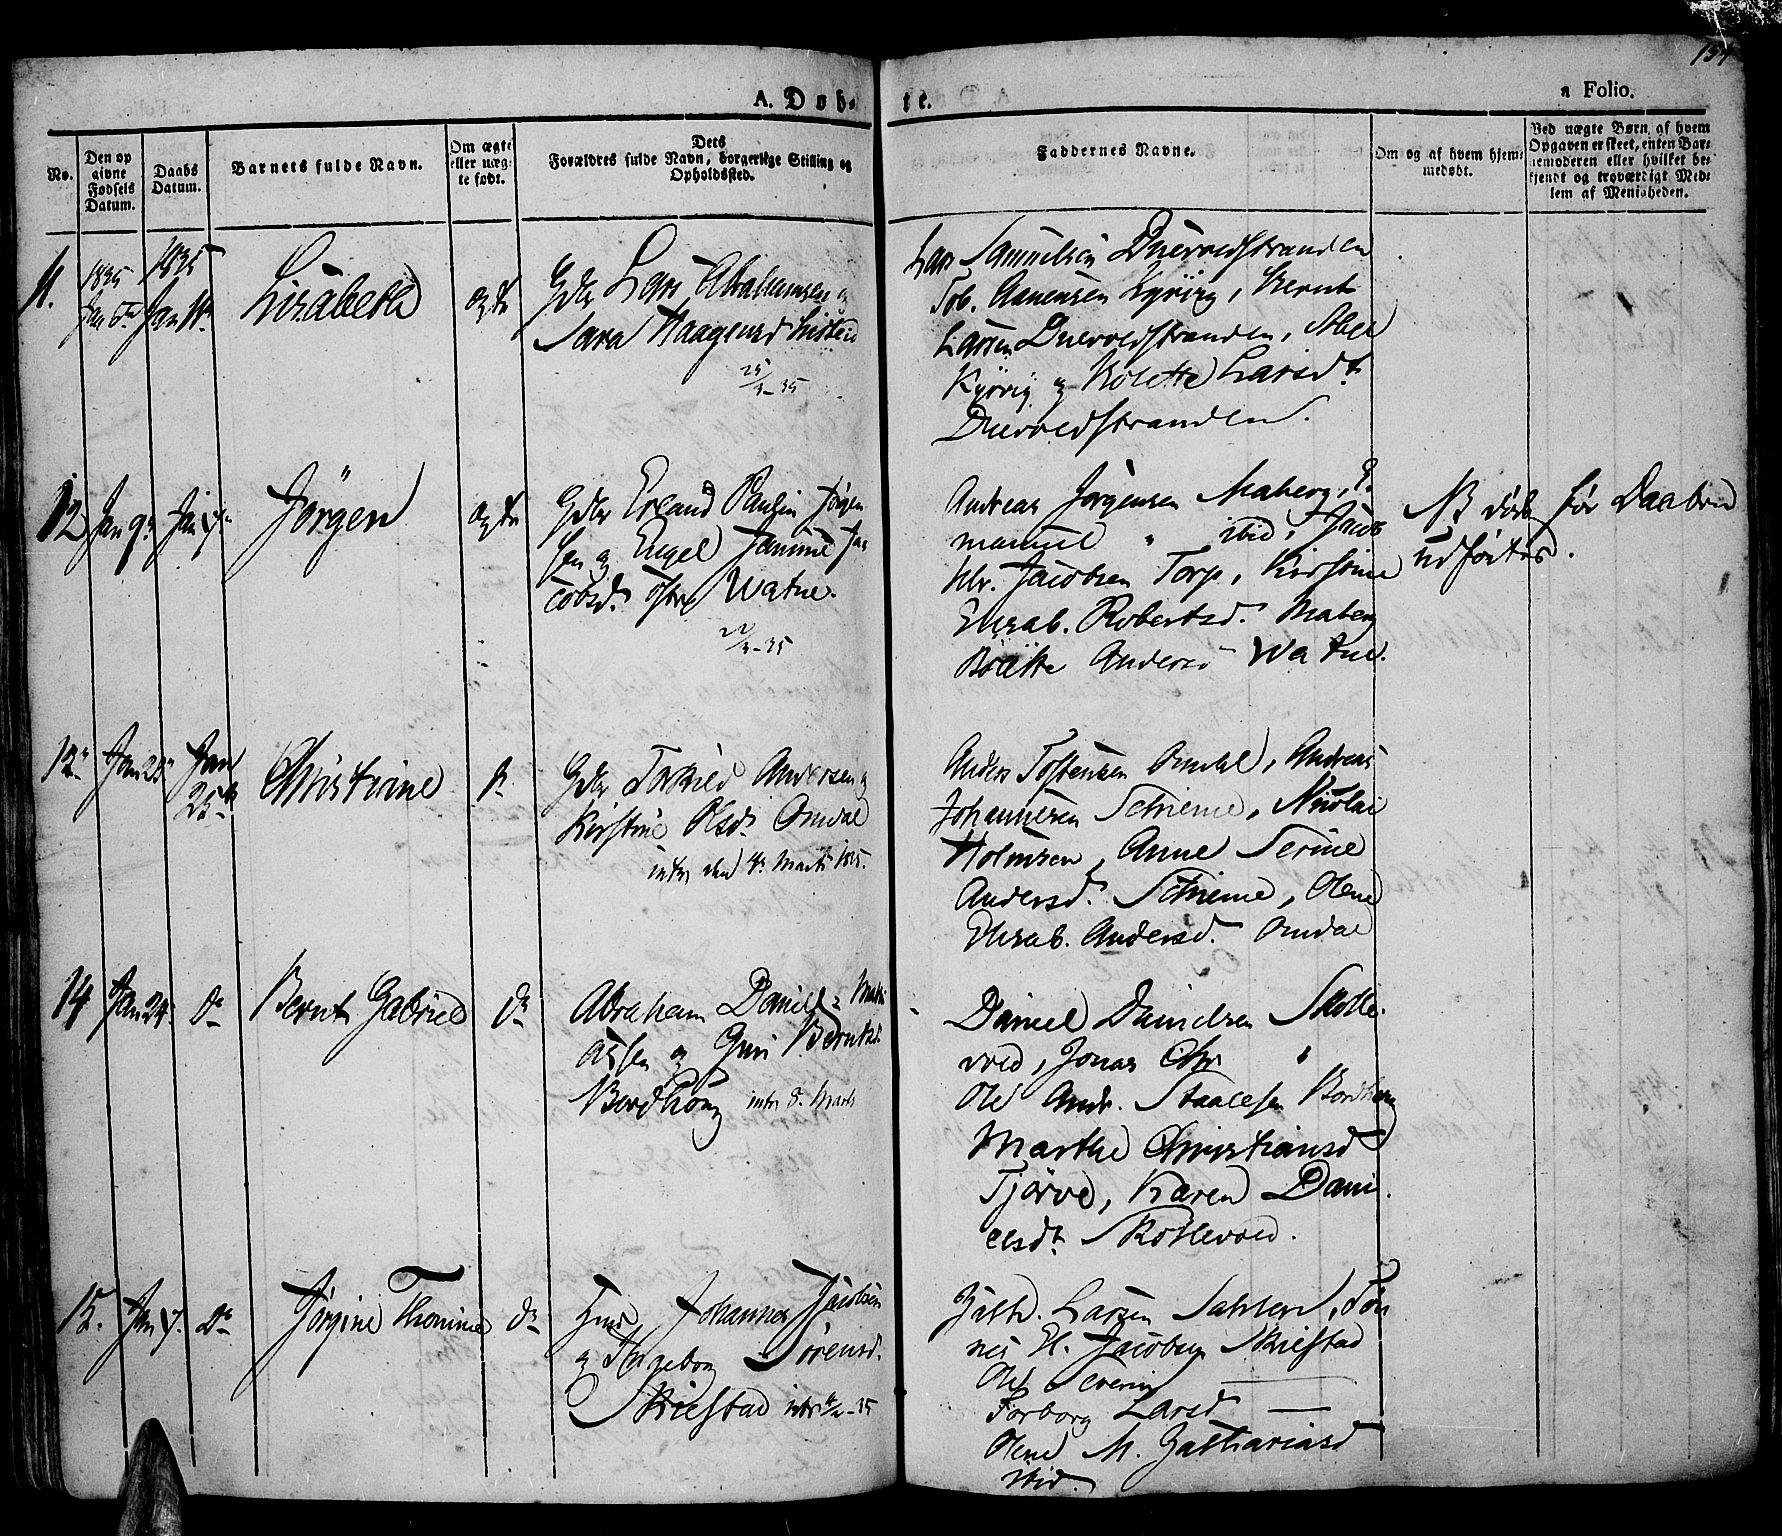 A. Døb-
te.
a Folio.
No.
Den op
givne
Fødsels
Datum.
Daabs
Datum.
Barnets fulde Navn.
Om ægte
eller uæg-
te født.
Dets
Forældres fulde Navn, borgerlige Stilling og
Opholdssted.
Faddernes Navne.
Om og af hvem hjem-
medøbt.
Ved uægte Børn, af hvem
Opgaven er skeet, enten Bar-
nemoderen eller hvilket be-
kjendt og troværdigt Med-
lem af Menigheden.
11.
1835
1835
Lisabeth
ægte
Lars Abrahamsen og
Sara Haagensd
Lars Samuelsen Duevoldstranden
Tob. Aanensen Kjørvig, Bernt
Larsen Duevoldstranden, Abel
Kjørvig og Kolette Larsd.
Duevoldstranden.
12
Jan 9
Jørgen
ægte
Erland Paulin Jørgen
sen og Engel Jamine Ja
cobsd. østre Watne.
Andreas Jørgensen Maberg,
manuel " ibid, Jacob
Jacobsen Torp, Kirstine
Elisab. Robertsd. Maberg
Anders Watne.
NB døde før Daaben
udførtes.
Jan
25
Christine
Torkild Andersen og
Kirstine Olsd. Omdal
intr. den 8 Marts 1835.
Anders Tostensen Omdal, Andreas
Johannesen Skieme, Nicolai
Holmsen, Anne Serine
Andersd. Skieme, Olene
Elisab. Andersd. Omdal
14
Jan 24.
do
Bernt Gabriel
do
Abraham Daniel Mathi
assen og Guri Berntsd.
Bordhoug intr 8. Marts
Daniel Davidsen Skolle-
vold, Jonas Chr "
Ole Andr. Staalesen Bordhoug
Marthe Christiansd
Tjørve, Karen Dani
elsd. Skollevold.
15.
Jan 7.
do
Jørgine Thomine
do
Johannes Jacobsen
og Ingeborg Sørensd.
Skiefstad intr
Zakh. Larsen Tøn
nes El. Jacobsen Skiefstad
Ole Severin —
Torborg Larsd —
Olene M. Zakhariasd
ibid.